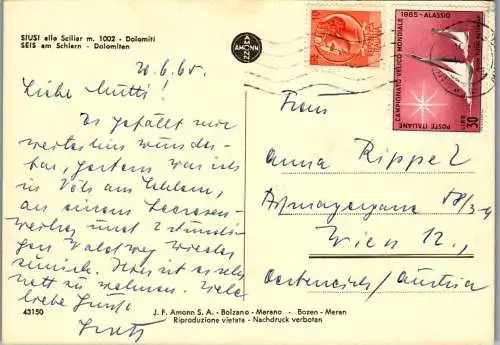 SIUSI allo Sciliar m. 1002 - Dolomiti
SEIS am Schlern - Dolomiten
AMONN
10
ITALIA
1965 - ALASSIO
CAMPIONATO VELICO MONDIALE
POSTE ITALIANE
LIRE 30
20.6.65.
Liebe Mutti!
Es gefällt mir
weiterhin wunder-
bar, gestern war ich
in Völs am Schlern,
an einem
und 2 stündi-
gen Waldweg wieder
zurück. Hier ist es sehr
nett zu wohnen. Viele
liebe Grüße
Frau
Anna Rippel
58/3-4
Wien 12.,
Oesterreich/Austria
43150
J. F. Amonn S. A. - Bolzano - Merano - Bozen - Meran
Riproduzione vietata - Nachdruck verboten